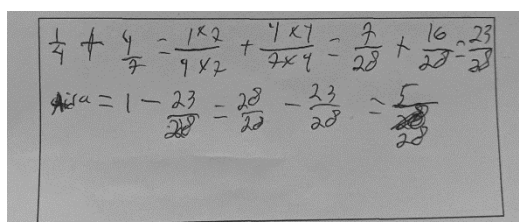 1/4 + 4/7 = 1×7/4×7 + 4×4/7×4 = 7/28 + 16/28 = 23/28
sisa = 1 - 23/28 = 28/28 - 23/28 = 5/28